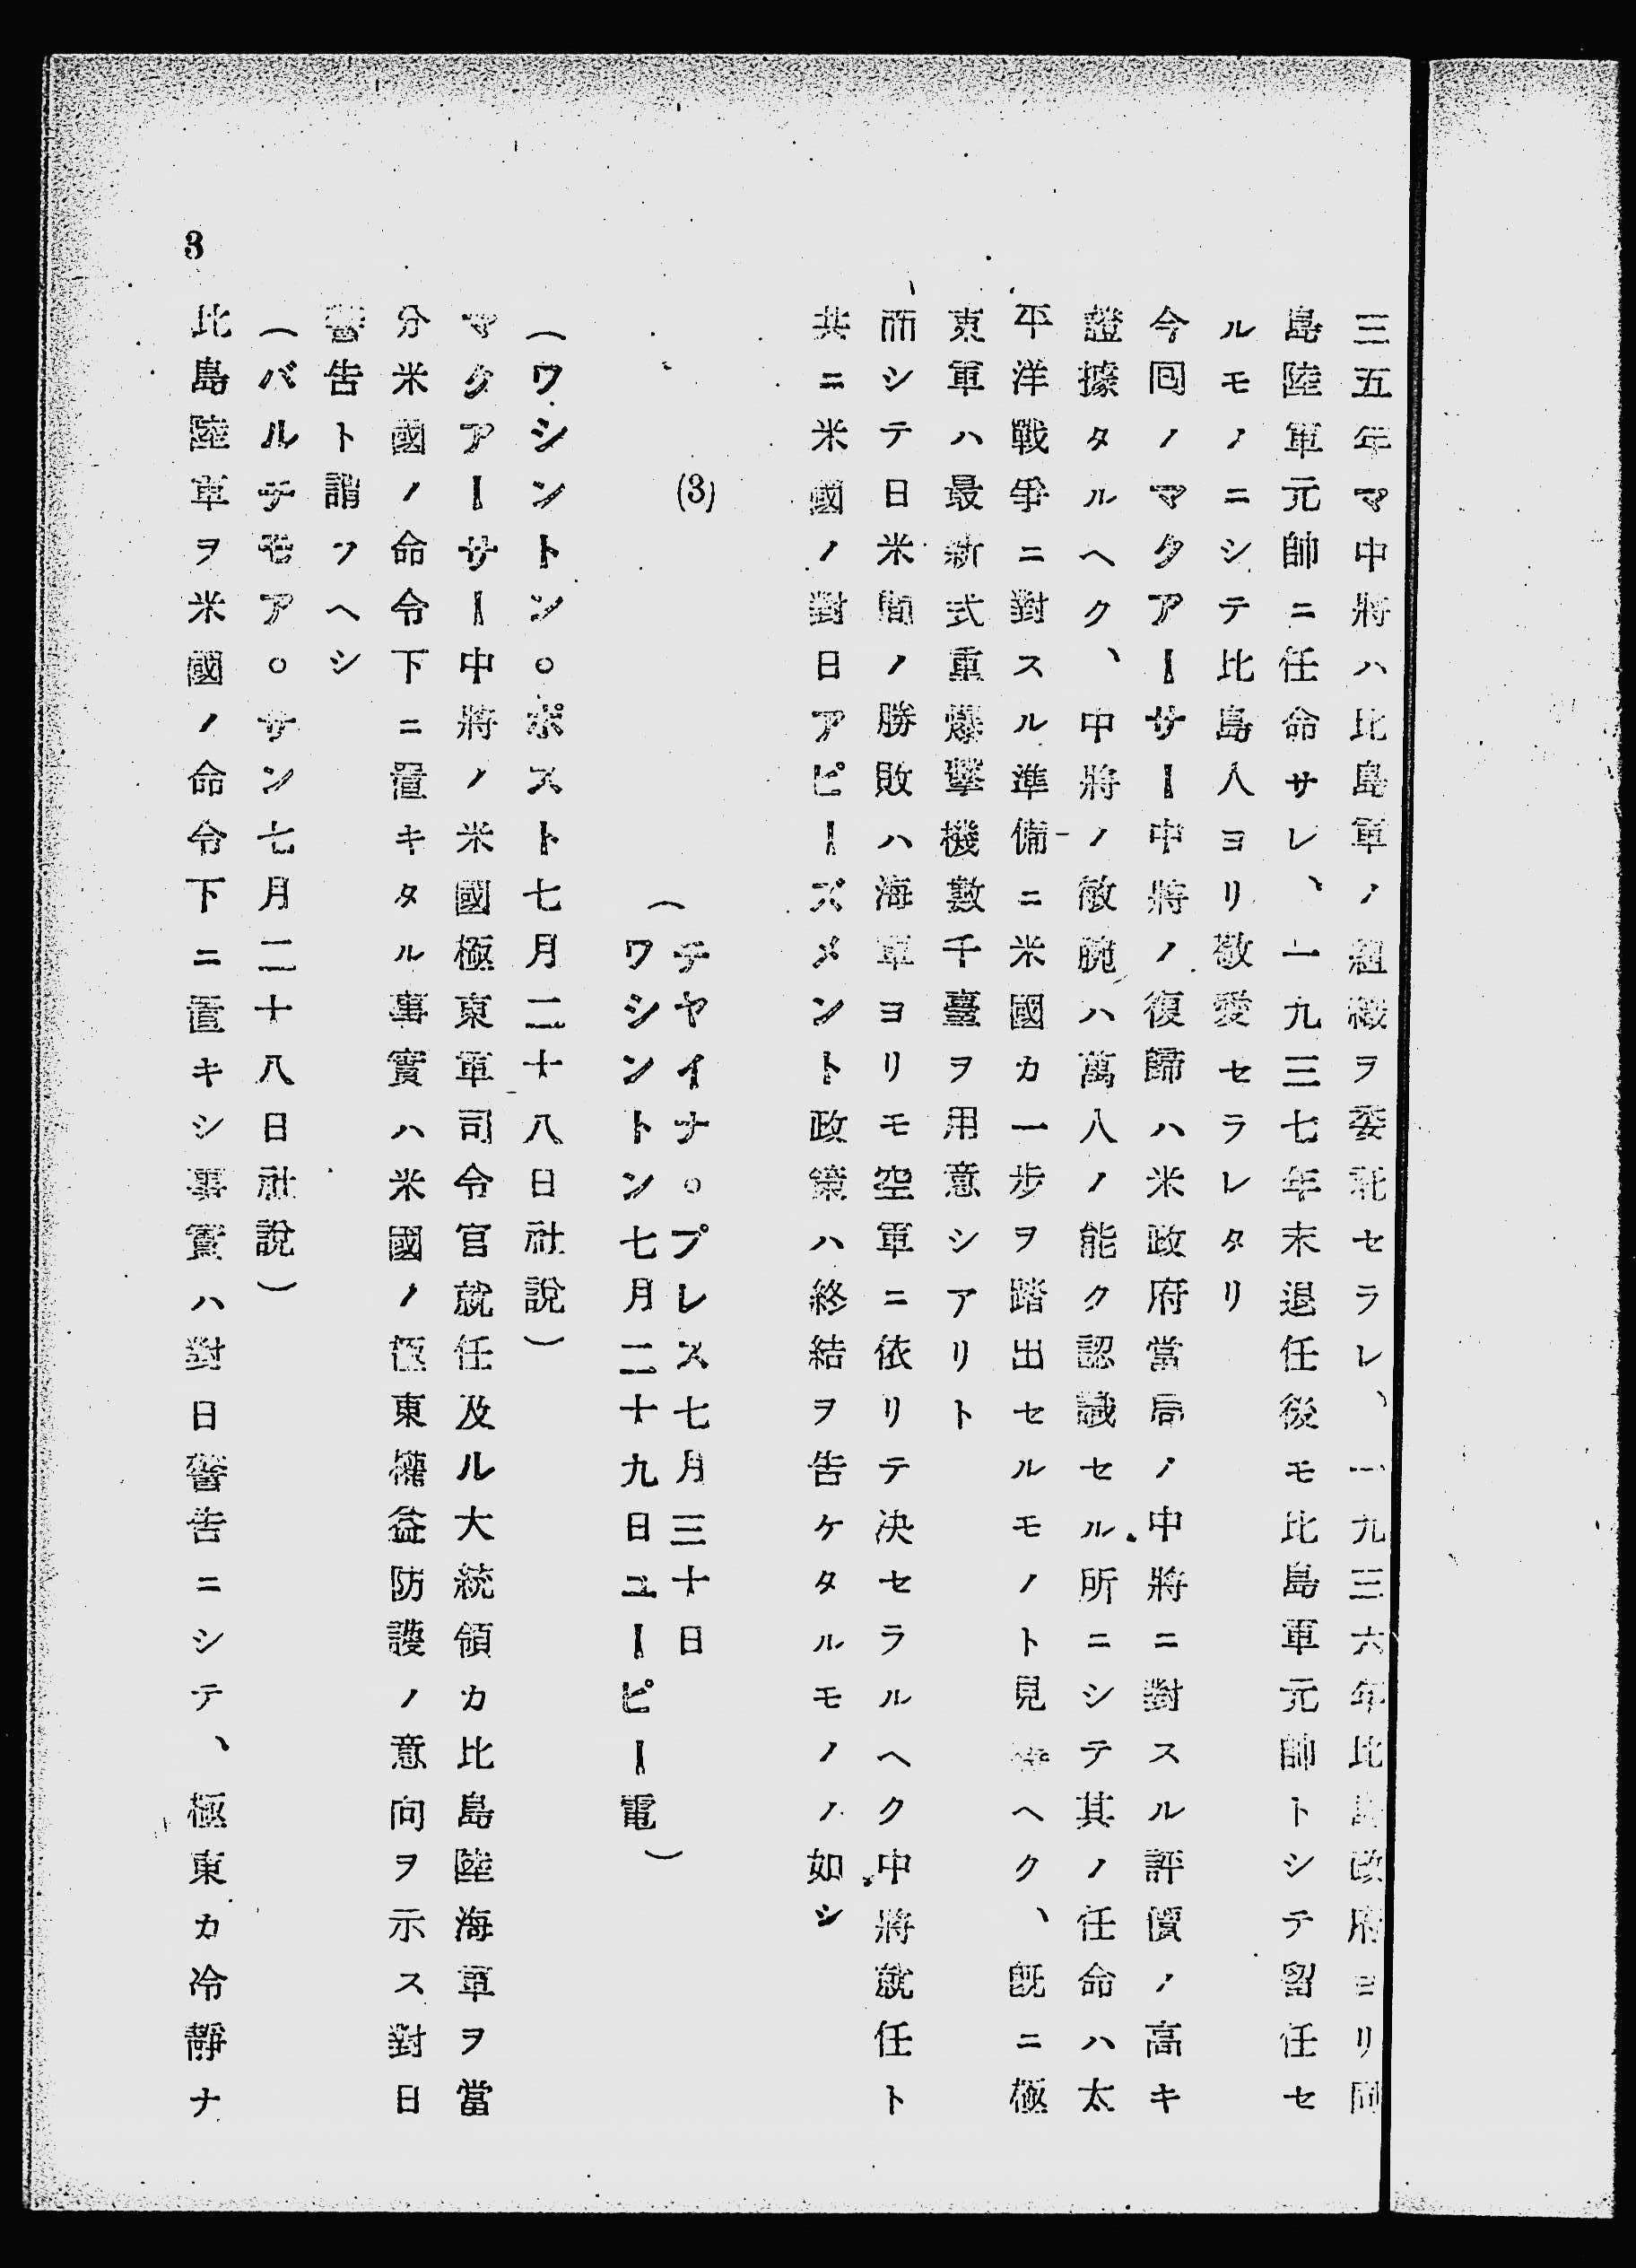 三五年マ中將ハ比島軍ノ組織ヲ委託セラレ、一九三六年比島政府ヨリ同
島陸軍元帥ニ任命サレ、一九三七年末退任後モ比島軍元帥トシテ留任セ
ルモノニシテ比島人ヨリ敬愛セラレタリ
今囘ノマクアーサー中將ノ復歸ハ米政府當局ノ中將ニ對スル評價ノ高キ
證據タルヘク、中將ノ敏腕ハ萬人ノ能ク認識セル所ニシテ其ノ任命ハ太
平洋戰爭ニ對スル準備ニ米國カ一步ヲ踏出セルモノト見ヘク、既ニ極
東軍ハ最新式重爆擊機數千臺ヲ用意シアリト
而シテ日米間ノ勝敗ハ海軍ヨリモ空軍ニ依リテ決セラルヘク中將就任ト
共ニ米國ノ對日アピーズメント政策ハ終結ヲ告ケタルモノノ如シ
(3)
（チヤイナ。プレス七月三十日
ワシントン七月二十九日ユーピー電）
（ワシントン。ポスト七月二十八日社說）
マクアーサー中將ノ米國極東軍司令官就任及ル大統領カ比島陸海軍ヲ當
分米國ノ命令下ニ置キタル事實ハ米國ノ極東權益防護ノ意向ヲ示ス對日
警告ト謂フヘシ
（バルチモア。サン七月二十八日社說）
比島陸軍ヲ米國ノ命令下ニ置キシ事實ハ對日警告ニシテ、極東カ冷靜ナ
3